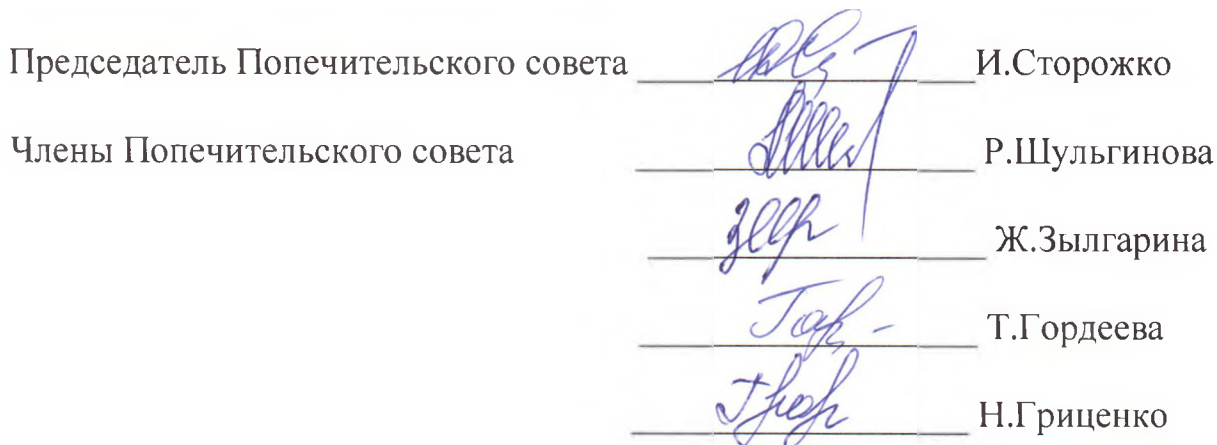 Председатель Попечительского совета И.Сторожко
Члены Попечительского совета Р.Шульгинова
Ж.Зылгарина
Т.Гордеева
Н.Гриценко